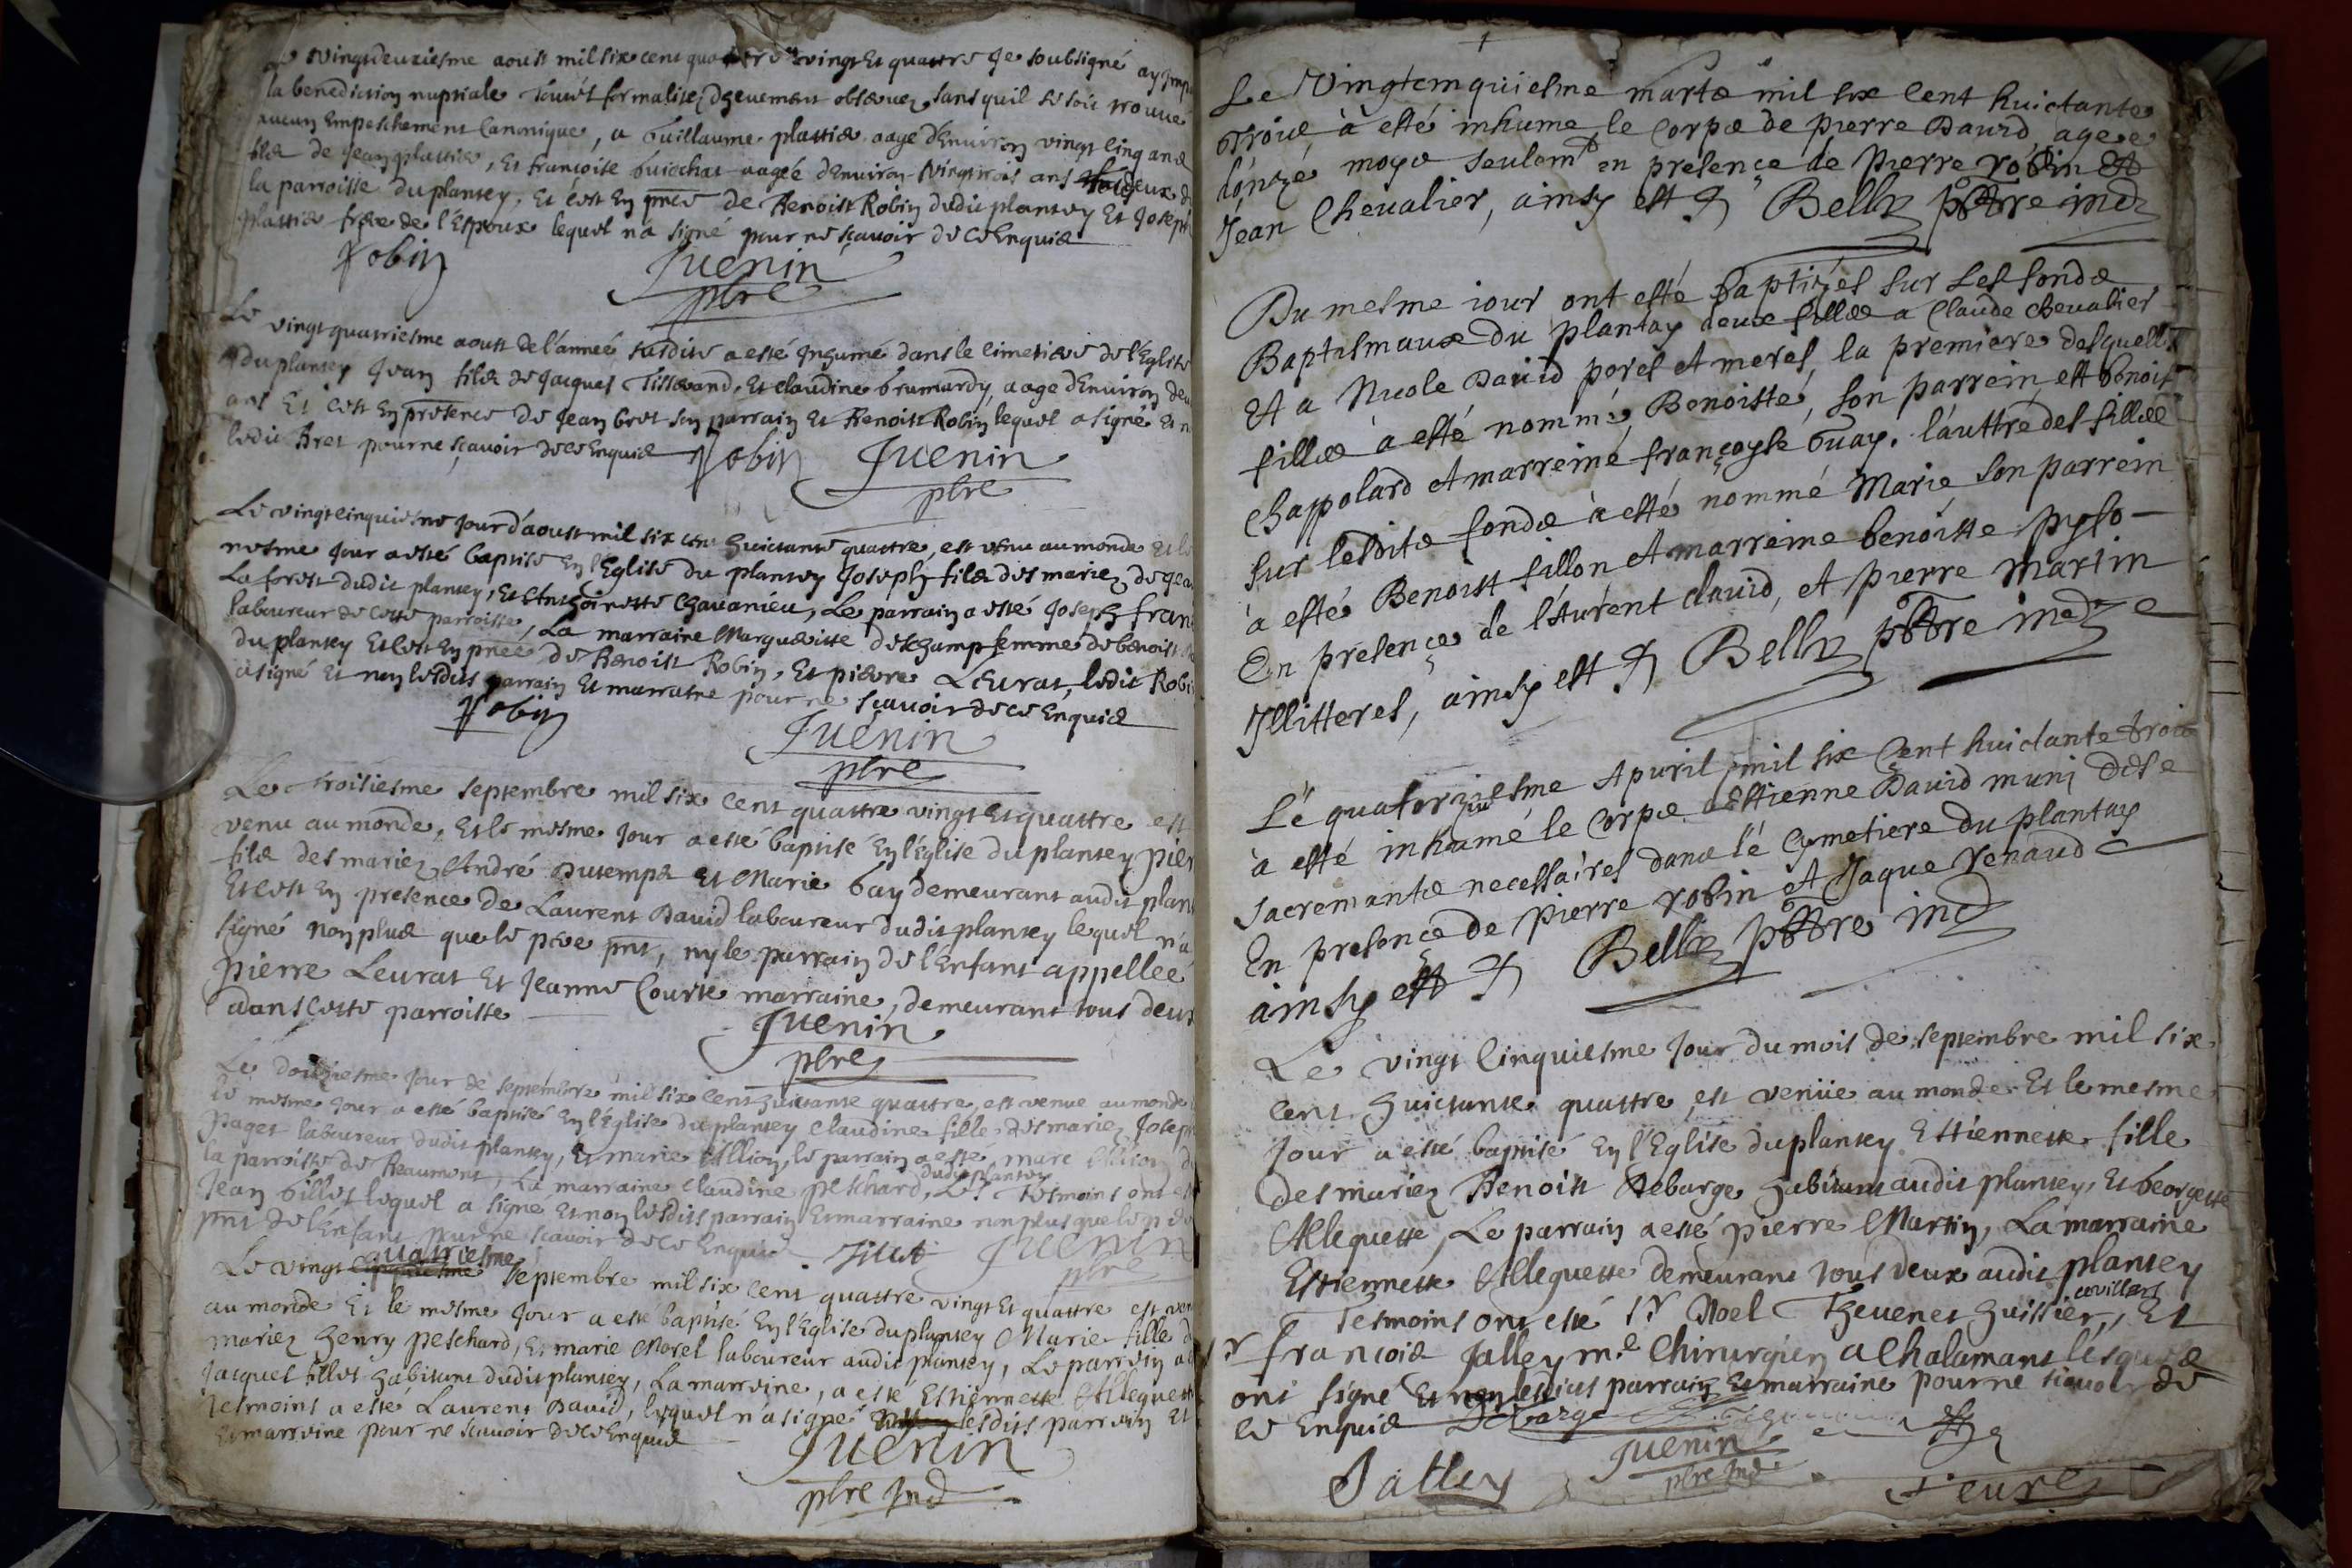 Le vingtdeuxiesme aoust mil six cent quattre vingt et quattre Je soubsigné ay
la benediction nuptiale toutes formalitez deuement observez, sans quil se soit trouvé
aucun Empeschement Canonique, a Guillaume plattier aagé d'Environ vingt cinq ans
fils de Jean plattier, Et françoise buiochat aagée d'Environ vingt trois ans deux
la parroisse du plantey, Et c'est En pnce de Benoist Robin dudit plantey Et Joseph
plattier frere de l'Espoux lequel n'a signé pour ne sçavoir de ce Enquis
Robin Juenin
pbre
Le vingt quatriesme aoust de l'année susdite a esté Inhumé dans le cimetiere de l'Eglise
du plantey Jean fils de Jacques Tisserand, Et Claudine brumardy, aagé d'Environ
ans Et c'est En presence de Jean bret son parrain Et Benoist Robin lequel a signé Et n
ledit Bret pour ne sçavoir de ce Enquis Robin Juenin
pbre
Le vingt cinquiesme Jour d'aoust mil six cent huictante quattre, est venu au monde et le
mesme Jour a esté baptisé En l'Eglise du plantey Joseph fils des mariez
La forest dudit plantey, Et Anthoinette Chavanieu, Le parrain a esté Joseph
laboureur de cette parroisse, La marraine Marguerite deschamp femme de benoist
du plantey Et c'est En pnce de Benoist Robin, Et pierre Leurat, ledit Robin
a signé Et non lesdits parrain Et marraine pour ne sçavoir de ce Enquis
Robin Juenin
pbre
Le troisiesme septembre mil six cent quattre vingt et quattre est
venu au monde, Et le mesme Jour a esté baptisé En l'Eglise du plantey
fils des mariez André Dutemps Et Marie bay demeurant audit
Et c'est En presence de Laurent David laboureur dudit plantey lequel n'a
signé non plus que le pere pnt, ny le parrain de l'Enfant appellée
Pierre Leurat Et Jeanne Courte marraine, demeurant tous deux
dans cette parroisse
Juenin
pbre
Le douziesme Jour de septembre mil six cent huictante quattre, est venue au monde
le mesme Jour a esté baptisé En l'Eglise du plantey Claudine fille des mariez
Paget laboureur dudit plantey, Et marie Allion, le parrain a esté marc Allion
la parroisse de Beaumont, La marraine Claudine peschard, dudit plantey Les tesmoins ont
Jean billet lequel a signé Et non lesdits parrain Et marraine non plus que le
pnt de l'Enfant pour ne sçavoir de ce Enquis Juenin
pbre
Le vingt cinquiesme quatriesme septembre mil six cent quattre vingt Et quattre est
au monde Et le mesme Jour a esté baptisé En l'Eglise du plantey Marie fille
mariez henry peschard, Et marie Morel laboureur audit plantey, Le parrein
Jacques fillet habitant dudit plantey, La marreine, a esté Estiennette
Tesmoins a esté Laurent David, lequel n'a signé lesdits parrein Et
Et marreine pour ne sçavoir de ce Enquis
Juenin
pbre Ind
Le Vingtcinquiesme marts mil six cent huictante
trois, à esté inhume le corps de pierre David, agee
d'onze moys seulemt en presençe de pierre robin et
Jean Chevalier, ainsy est Belly pbtre ind
Du mesme iour ont esté Baptizés sur Les fonds
Baptismaux du plantay deux filles a Claude Chevalier
Et a Nicole David peres et meres, la premiere desquelles
filles à esté nommé Benoiste, son parrein est benoist
Chappolard et marreine françoyse Guay. l'auttre des filles
sur lesdits fonds à esté nommé Marie son parrein
à esté Benoist fillon et marreine benoiste
En presençe de l'aurent david, et pierre martin
Illitteres, ainsy est Belly pbtre ind
Lé quatorziesme Apuril mil six Cent huictante trois
à esté inhumé le corps d'Estienne David muni des
sacremants necessaires dans lé cymetiere du plantay
En presençe de pierre robin et Jaque renaud
ainsy est Belly pbtre ind
Le vingt Cinquiesme Jour du mois de septembre mil six
cent huictante quattre, est venüe au monde Et le mesme
Jour a esté baptisé En l'Eglise du plantey Ettiennette fille
des mariez Benoist Debarge habitant audit plantey, Et Georgette
Alleguette, Le parrain a esté pierre Martin, La marraine
Estiennette Alleguette demeurant tous deux audit plantey
Tesmoins ont esté Sr Noel Thevenet huissier, Et
Sr françois Jalley me Chirurgien a Chalamant lesquels
ont signé Et non lesdits parrain Et marraine pour ne sçavoir de
ce Enquis Debarge
Juenin
pbre Ind
Jalley